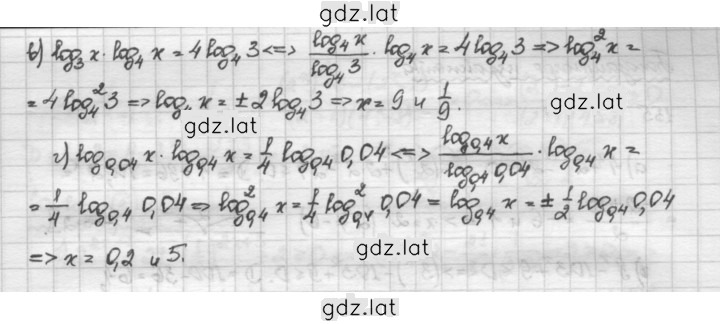 gdz.lat
в) log₃ x · log₄ x = 4 log₄ 3 <=> log₄ x / log₄ 3 · log₄ x = 4 log₄ 3 => log₄² x =
= 4 log₄² 3 => log₄ x = ± 2 log₄ 3 => x = 9 и 1/9.
gdz.lat
gdz.lat
г) log₀,₀₄ x · log₀,₄ x = 1/4 log₀,₄ 0,04 <=> log₀,₄ x / log₀,₄ 0,04 · log₀,₄ x =
= 1/4 log₀,₄ 0,04 => log²₀,₄ x = 1/4 log²₀,₄ 0,04 = log₀,₄ x = ± 1/2 log₀,₄ 0,04
gdz.lat
=> x = 0,2 и 5.
gdz.lat